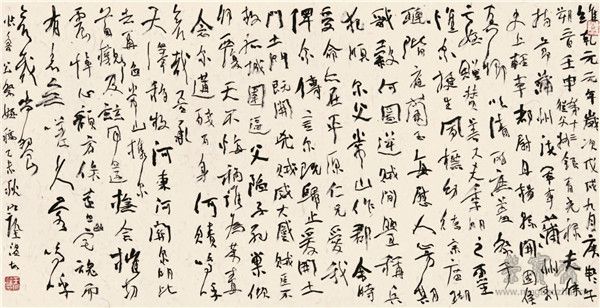 維乾元元年歲次戊戌九月庚午
朔三日壬申第十三叔銀青光祿夫使
持節蒲州諸軍事蒲州刺
史上輕車都尉丹楊縣開國侯
真卿以清酌庶羞祭于
亡姪贈贊善大夫季明之靈
惟尔挺生夙標幼德宗廟瑚
璉階庭蘭玉每慰人心方期
戩穀何圖逆賊閒釁稱兵
犯順尔父常山作郡余時
受命亦在平原仁兄愛我
俾尔傳言尔既歸止爰開土
門土門既開兇威大蹙賊臣不
救孤城圍逼父陷子死巢傾
卵覆天不悔禍誰為荼毒
念尔遘殘百身何贖嗚呼
哀哉吾承
天澤移牧河東河關尔明比
者再陷常山攜尔
首櫬及茲同還撫念摧切
震悼心顏方俟遠宅魂而
有知無嗟久客嗚呼
哀哉尚饗
乙未秋